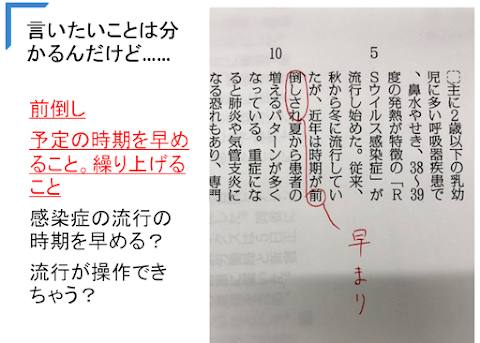 言いたいことは分
かるんだけど……
前倒し
予定の時期を早め
ること。繰り上げる
こと
感染症の流行の
時期を早める？
流行が操作でき
ちゃう？
主に2歳以下の乳幼
児に多い呼吸器疾患で
、鼻水やせき、38～39
度の発熱が特徴の「R
5
Sウイルス感染症」が
流行し始めた。従来、
秋から冬に流行してい
たが、近年は時期が前
倒しされ夏から患者の
10
増えるパターンが多く
なっている。重症にな
ると肺炎や気管支炎に
なる恐れもあり、専門
早まり